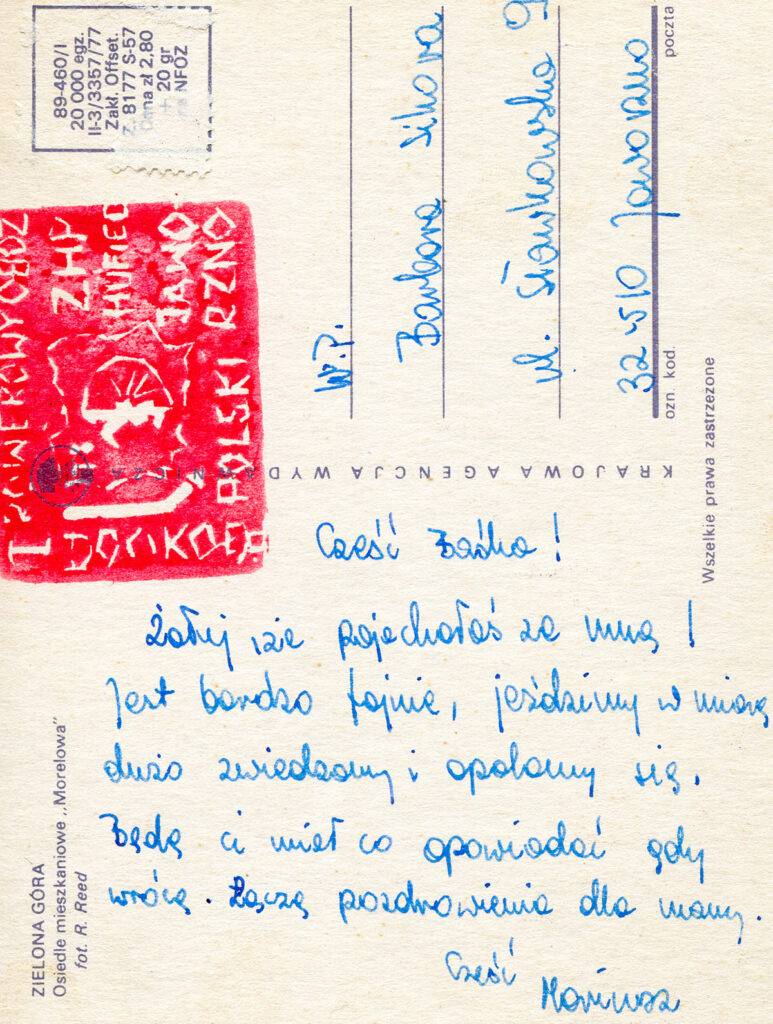 Cześć Baśka!
Żałuj że pojechałaś ze mną!
Jest bardzo fajnie, jeździmy w miarę
dużo zwiedzamy i opalamy się.
Będę ci miał co opowiadać gdy
wrócę. Łączę pozdrowienia dla mamy.
Cześć
Mariusz
W.P.
Barbara
ul. Sławkowska 9
32 510 Jaworzno
ozn. kod.
poczta
KRAJOWA AGENCJA WYDAWNICZA
Wszelkie prawa zastrzeżone
ZIELONA GÓRA
Osiedle mieszkaniowe „Morelowa"
fot. R. Reed
89-460/I
20 000 egz.
II-3/3357/77
Zakł. Offset.
Z. 8177 S-57
Cena zł 2,80
+ 20 gr
na NFOZ
ZHP
HUFIEC
JAWO-
RZNO
POLSKI